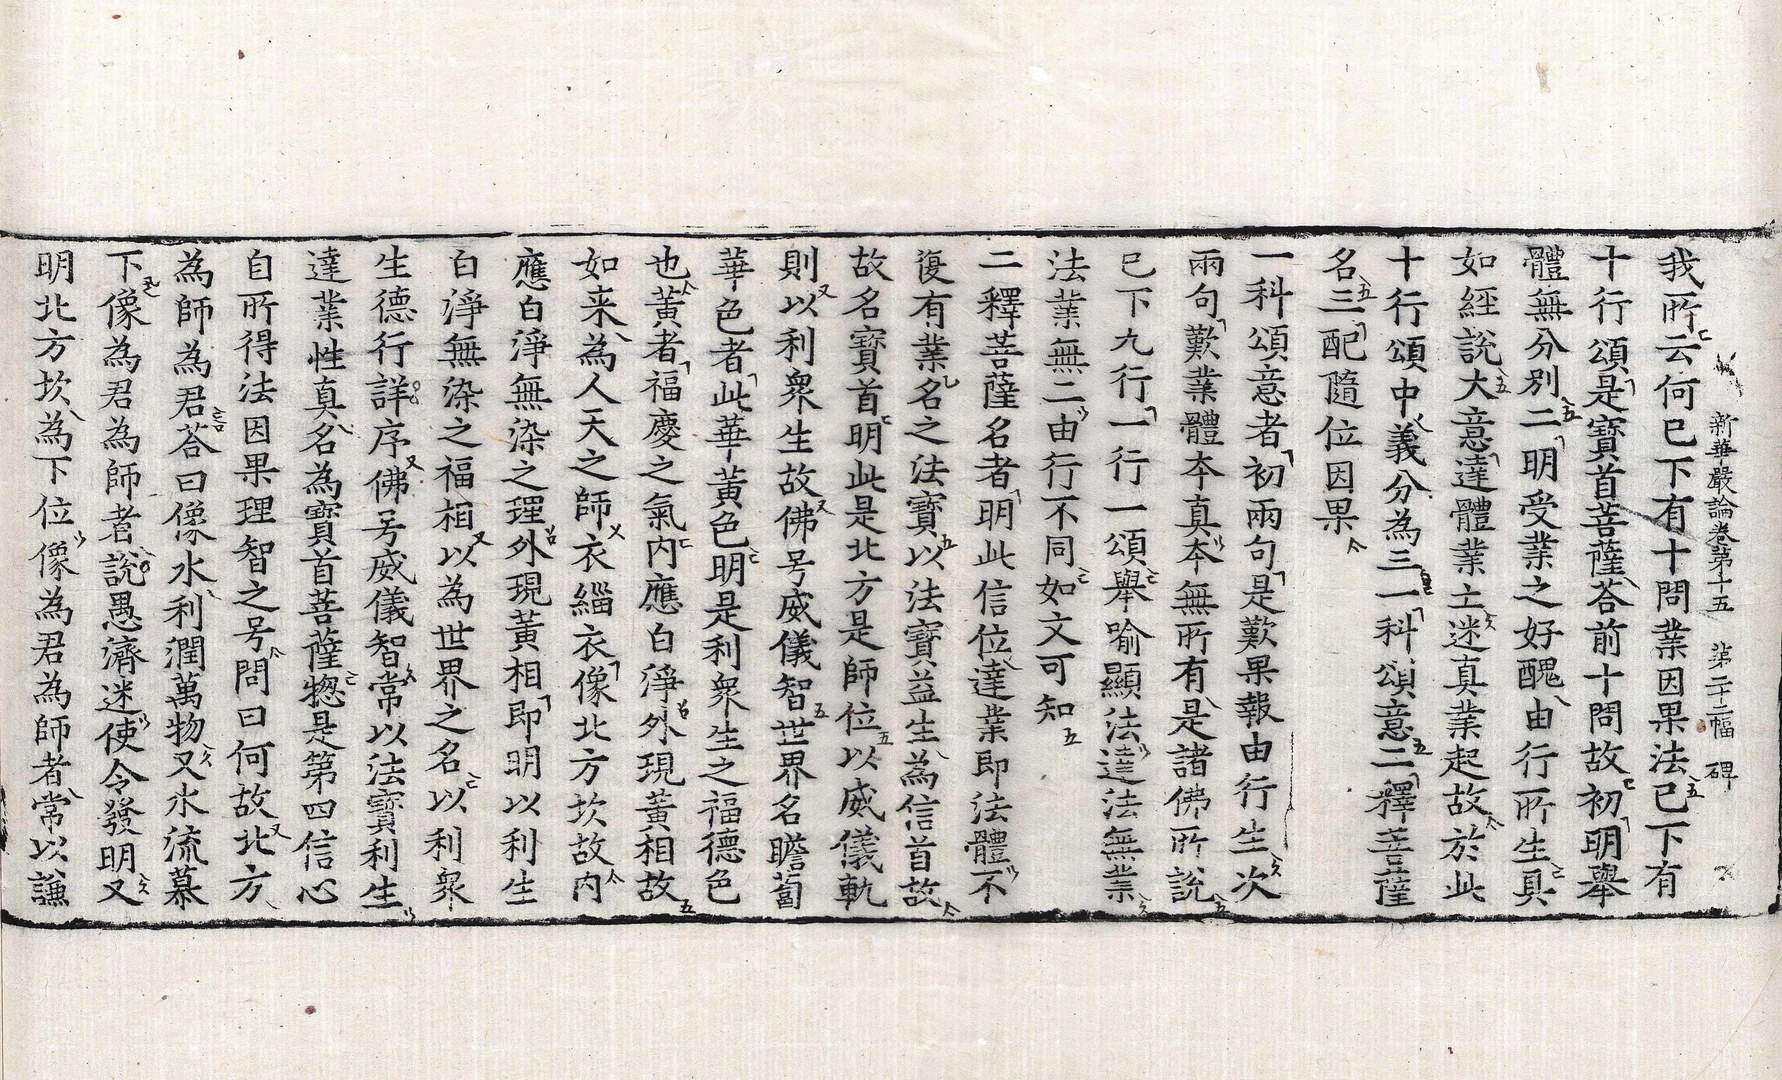 新華嚴論卷第十五 第二十二幅 碑
我所云何已下有十問業因果法已下有
十行頌是寶首菩薩荅前十問故初明舉
體無分別二明受業之好醜由行所生具
如經說大意達體業亡迷真業起故於此
十行頌中義分為三一科頌意二釋菩薩
名三配隨位因果
一科頌意者初兩句是歎果報由行生次
兩句歎業體本真本無所有是諸佛所說
已下九行一行一頌舉喻顯法達法無業
法業無二由行不同如文可知
二釋菩薩名者明此信位達業即法體不
復有業名之法寶以法寶益生為信首故
故名寶首明此是北方是師位以威儀軌
則以利衆生故佛号威儀智世界名瞻蔔
華色者此華黃色明是利衆生之福德色
也黃者福慶之氣内應白淨外現黃相故
如来為人天之師衣緇衣像北方坎故内
應白淨無染之理外現黃相即明以利生
白淨無染之福相以為世界之名以利衆
生德行詳序佛号威儀智常以法寶利生
達業性真名為寶首菩薩惣是第四信心
自所得法因果理智之号問曰何故北方
為師為君荅曰像水利潤萬物又水流慕
下像為君為師者說愚濟迷使令發明又
明北方坎為下位像為君為師者常以謙